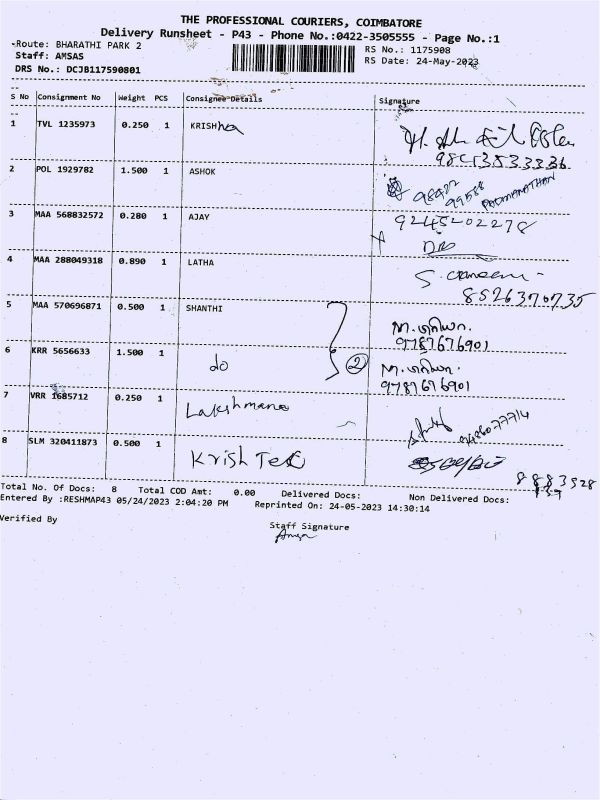 THE PROFESSIONAL COURIERS, COIMBATORE
Delivery Runsheet - P43 - Phone No.:0422-3505555 - Page No.:1
-Route: BHARATHI PARK 2
RS No.: 1175908
Staff: AMSAS
RS Date: 24-May-2023
DRS No.: DCJB117590801
S No Consignment No Weight PCS Consignee Details Signature
1 TVL 1235973 0.250 1 KRISHna
98413533336
2 POL 1929782 1.500 1 ASHOK
98422
99588 PADMANATHAN
3 MAA 568832572 0.280 1 AJAY 9245202278
4 MAA 288049318 0.890 1 LATHA
8526370735
5 MAA 570696871 0.500 1 SHANTHI
9787676901
6 KRR 5656633 1.500 1 do 2
9787676901
7 VRR 1685712 0.250 1 Lakshmana
8 SLM 320411873 0.500 1 Krish Tec
8883528
Total No. Of Docs: 8 Total COD Amt: 0.00 Delivered Docs: Non Delivered Docs:
Entered By :RESHMAP43 05/24/2023 2:04:20 PM Reprinted On: 24-05-2023 14:30:14
Verified By
Staff Signature